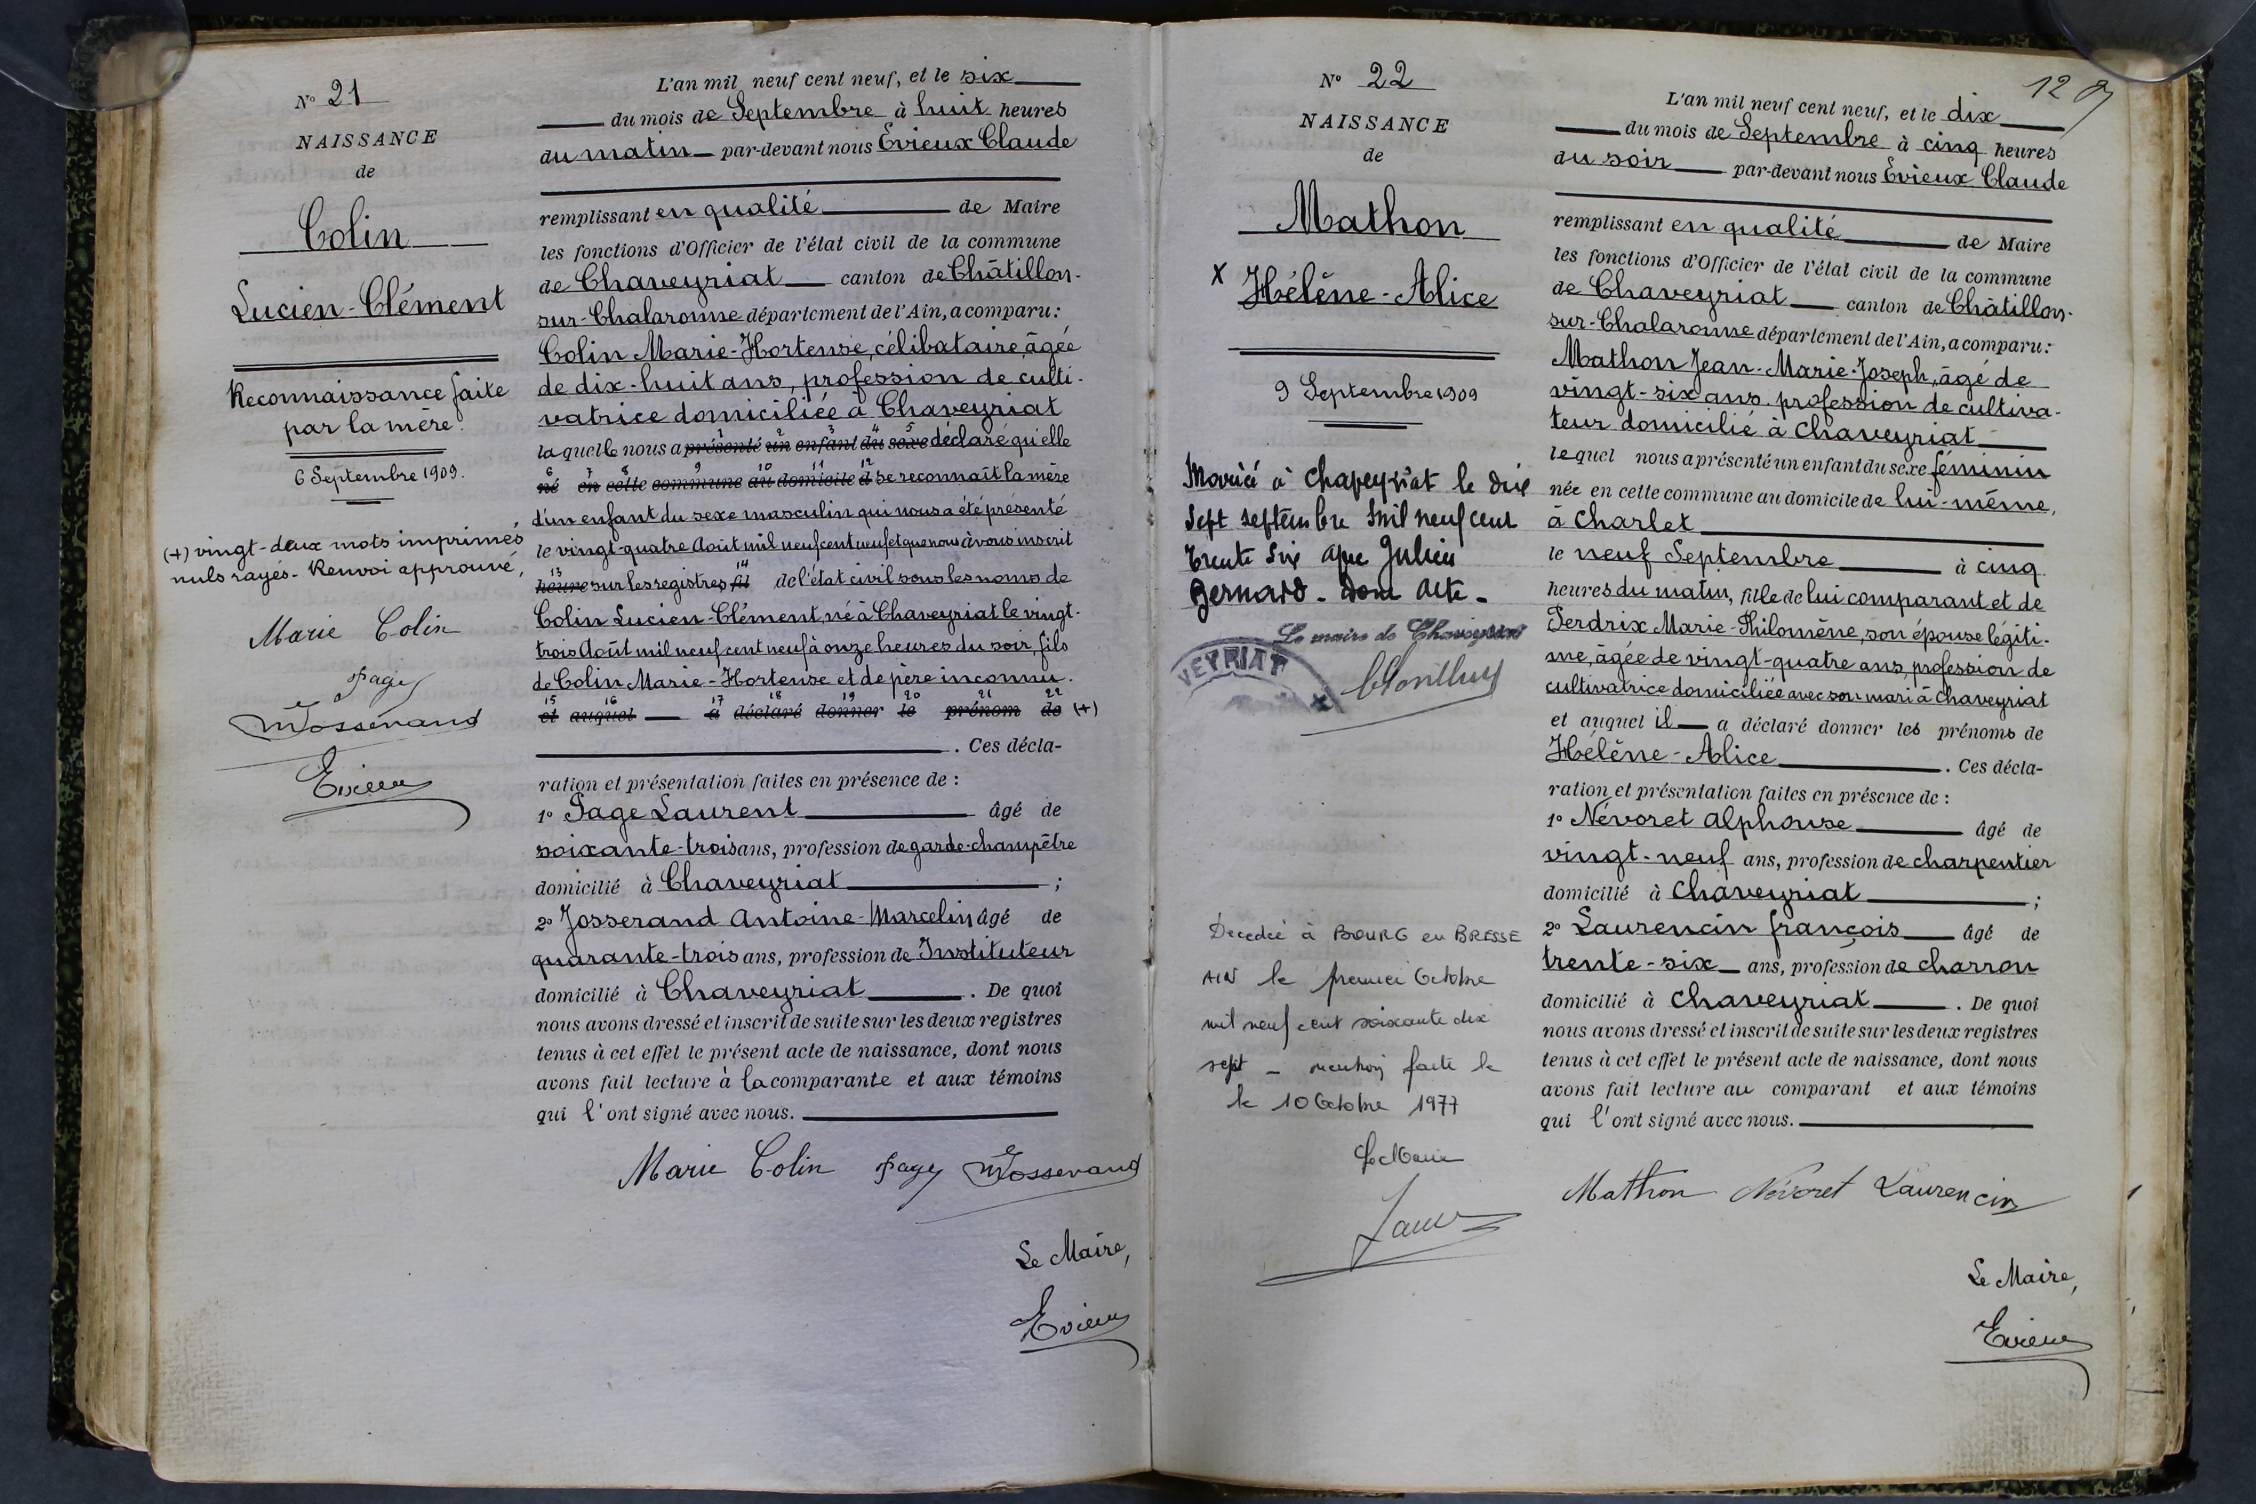 N° 21
NAISSANCE
de
Colin
Lucien-Clément
Reconnaissance faite
par la mère.
6 Septembre 1909.
(+) vingt-deux mots imprimés
nuls rayés. Renvoi approuvé,
Marie Colin
Page
Josserand
Evieux
L'an mil neuf cent neuf, et le six
du mois de Septembre à huit heures
du matin par-devant nous Evieux Claude
remplissant en qualité de Maire
les fonctions d'Officier de l'état civil de la commune
de Chaveyriat canton de Châtillon-
sur-Chalaronne département de l'Ain, a comparu:
Colin Marie-Hortense, célibataire, âgée
de dix-huit ans, profession de culti-
vatrice domiciliée à Chaveyriat
1 2 3 4 5
laquelle nous a présenté un enfant du sexe déclaré qu'elle
6 7 8 9 10 11 12
né en cette commune au domicile d se reconnaît la mère
d'un enfant du sexe masculin qui nous a été présenté
le vingt-quatre Août mil neuf cent neuf et que nous avons inscrit
13 14
heure sur les registres fil de l'état civil sous les noms de
Colin Lucien-Clément, né à Chaveyriat le vingt-
trois Août mil neuf cent neuf à onze heures du soir, fils
de Colin Marie-Hortense et de père inconnu.
15 16 17 18 19 20 21 22
et auquel a déclaré donner le prénom de (+)
. Ces décla-
ration et présentation faites en présence de :
1° Page Laurent âgé de
soixante-trois ans, profession de garde-champêtre
domicilié à Chaveyriat ;
2° Josserand Antoine-Marcelin âgé de
quarante-trois ans, profession de Instituteur
domicilié à Chaveyriat . De quoi
nous avons dressé et inscrit de suite sur les deux registres
tenus à cet effet le présent acte de naissance, dont nous
avons fait lecture à la comparante et aux témoins
qui l'ont signé avec nous.
Marie Colin Page Josserand
Le Maire,
Evieux
N° 22
NAISSANCE
de
Mathon
X Hélène-Alice
9 Septembre 1909
Mariée à Chaveyriat le dix
sept septembre mil neuf cent
trente six avec Julien
Bernard - dont acte -
Le maire de Chaveyriat
VEYRIAT
Décédée à BOURG en BRESSE
AIN le premier Octobre
mil neuf cent soixante dix
sept - mention faite le
le 10 Octobre 1977
Le Maire
12
L'an mil neuf cent neuf, et le dix
du mois de Septembre à cinq heures
du soir par-devant nous Evieux Claude
remplissant en qualité de Maire
les fonctions d'Officier de l'état civil de la commune
de Chaveyriat canton de Châtillon-
sur-Chalaronne département de l'Ain, a comparu:
Mathon Jean-Marie-Joseph, âgé de
vingt-six ans profession de cultiva-
teur domicilié à Chaveyriat
lequel nous a présenté un enfant du sexe féminin
née en cette commune au domicile de lui-même,
à Charlet
le neuf Septembre à cinq
heures du matin, fille de lui comparant et de
Perdrix Marie-Philomène, son épouse légiti-
me, âgée de vingt-quatre ans, profession de
cultivatrice domiciliée avec son mari à Chaveyriat
et auquel il a déclaré donner les prénoms de
Hélène-Alice . Ces décla-
ration et présentation faites en présence de :
1° Névoret Alphonse âgé de
vingt-neuf ans, profession de charpentier
domicilié à Chaveyriat ;
2° Laurencin François âgé de
trente-six ans, profession de charron
domicilié à Chaveyriat . De quoi
nous avons dressé et inscrit de suite sur les deux registres
tenus à cet effet le présent acte de naissance, dont nous
avons fait lecture au comparant et aux témoins
qui l'ont signé avec nous.
Mathon Névoret Laurencin
Le Maire,
Evieux